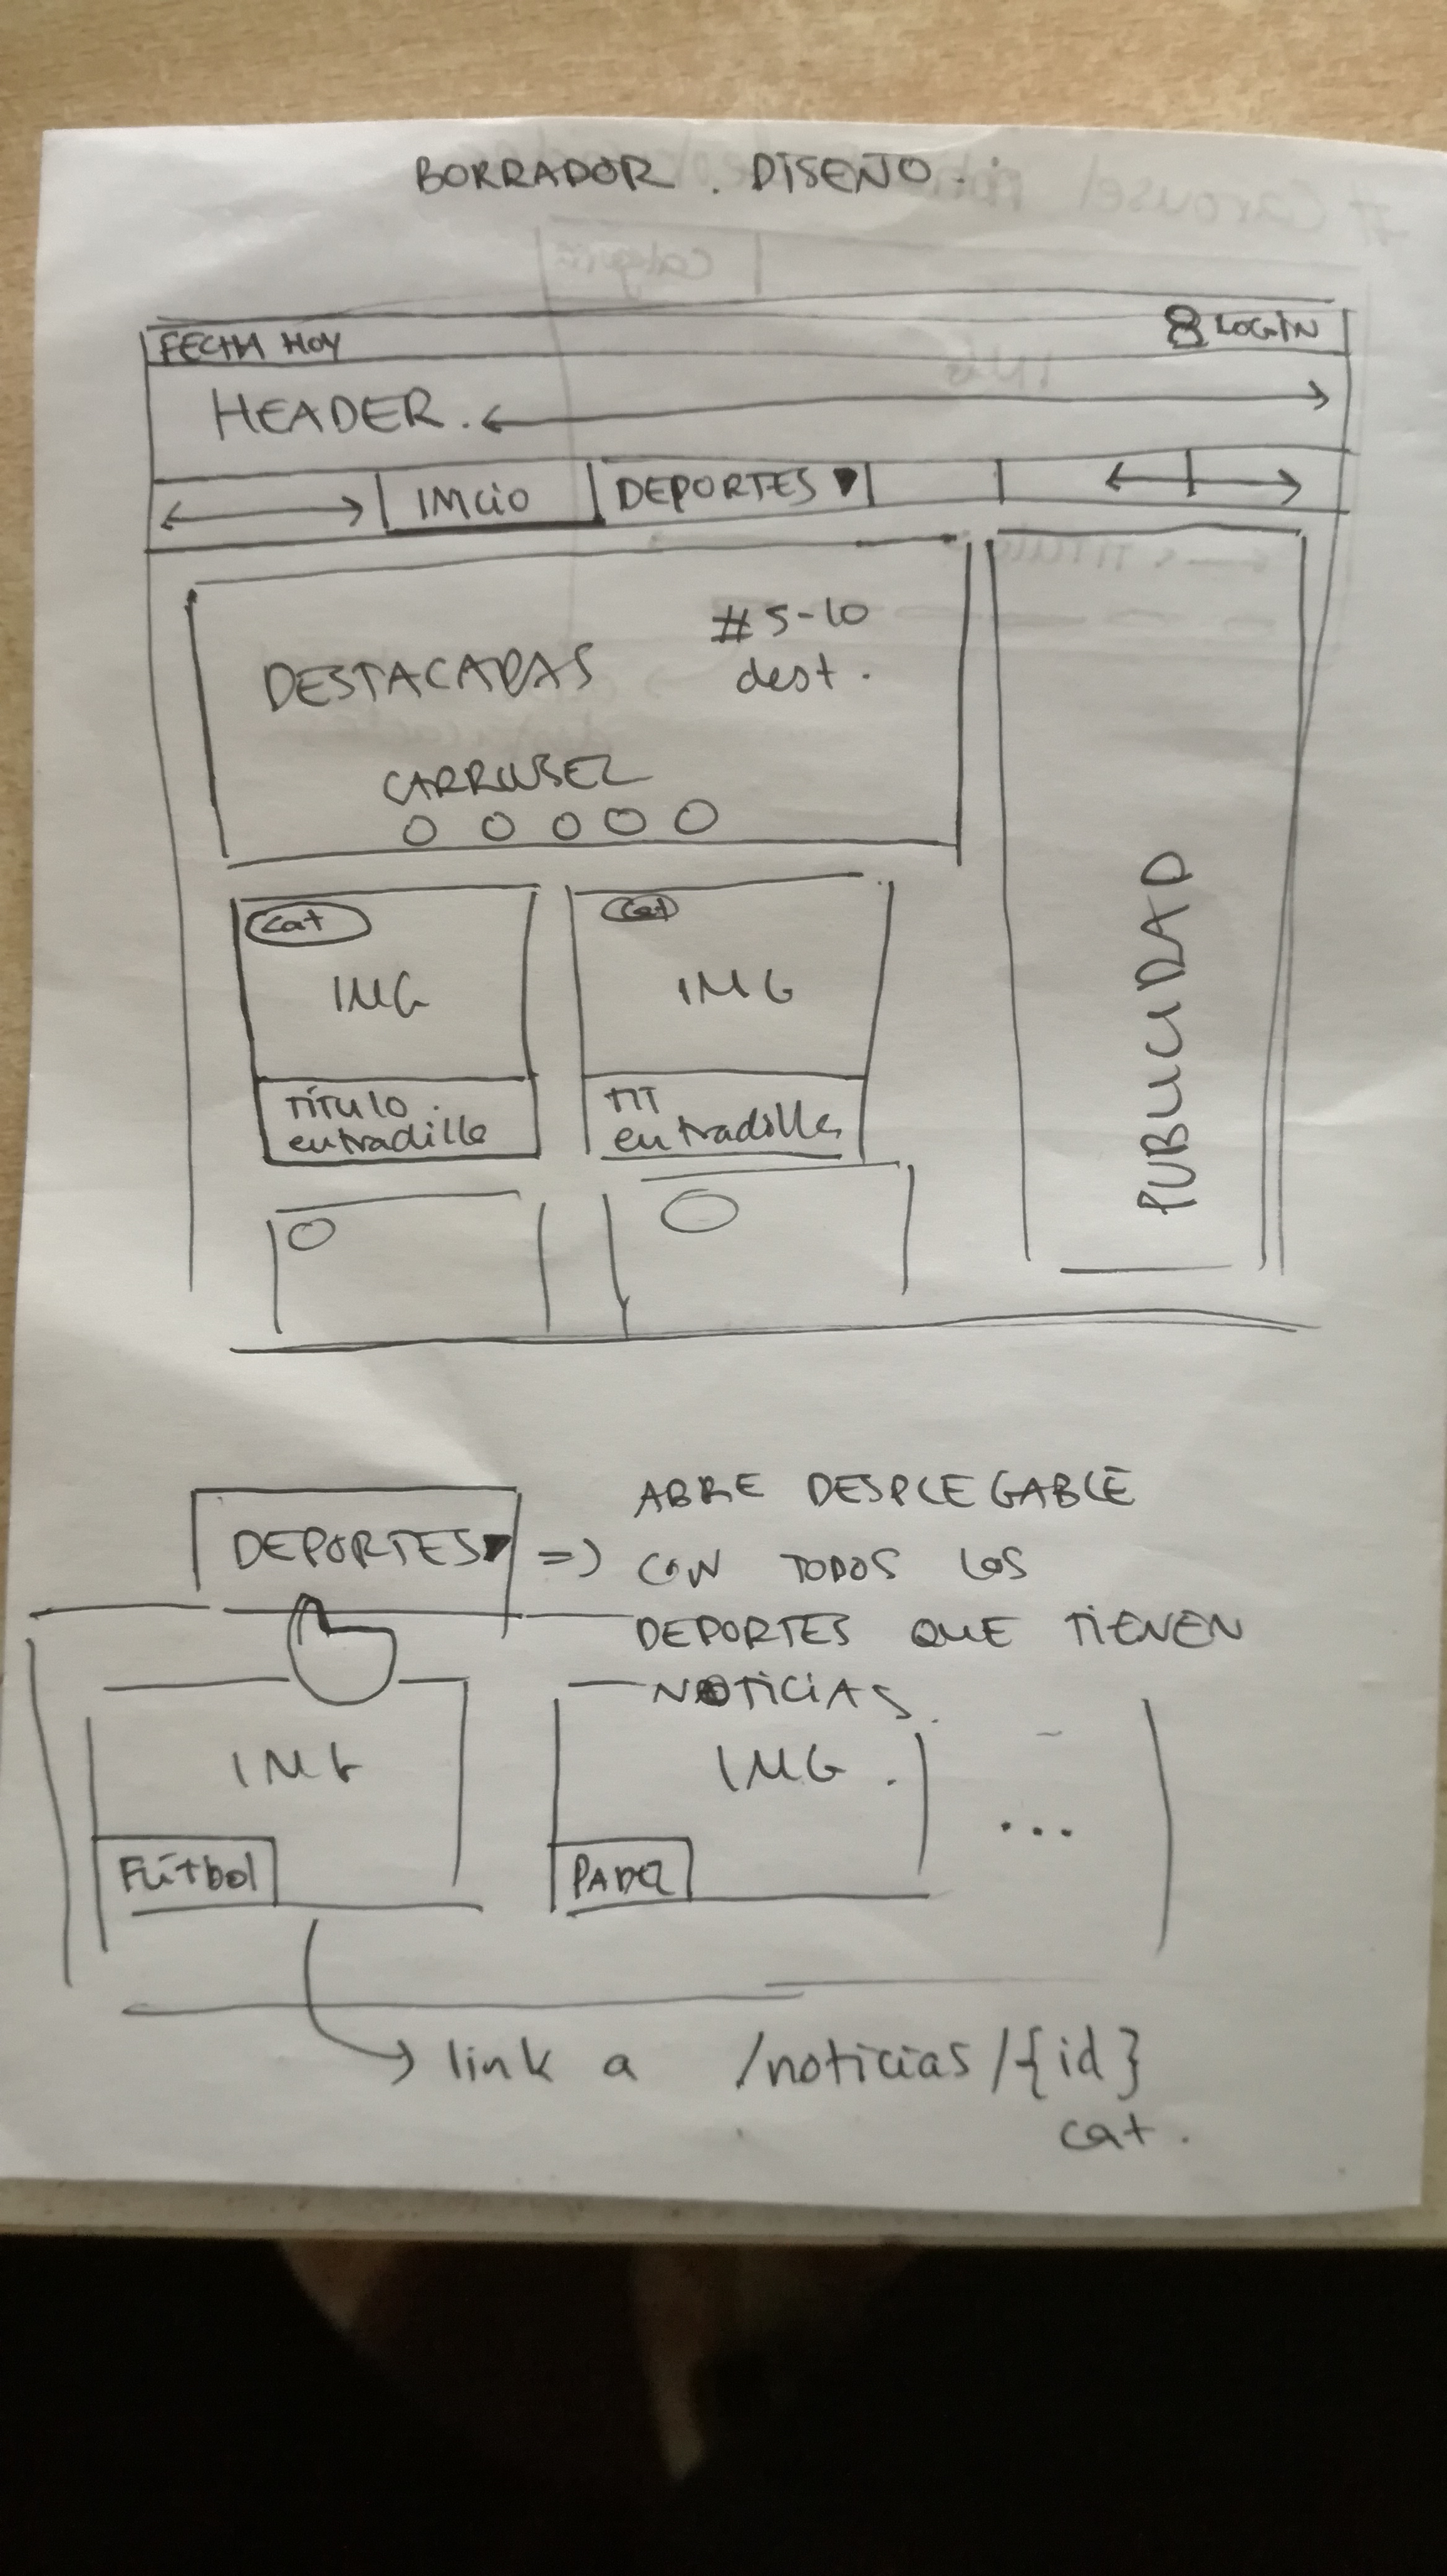 BORRADOR. DISEÑO.
FECHA HOY
LOGIN
HEADER.
INICIO
DEPORTES
DESTACADAS
#5-10
dest.
CARROUSEL
cat
cat
IMG
IMG
TÍTULO.
entradilla
TIT
entradilla
PUBLICIDAD
DEPORTES
=> ABRE DESPLEGABLE
CON TODOS LOS
DEPORTES QUE TIENEN
NOTICIAS.
IMG
IMG.
...
Fútbol
PADEL
link a /noticias/{id}
cat.